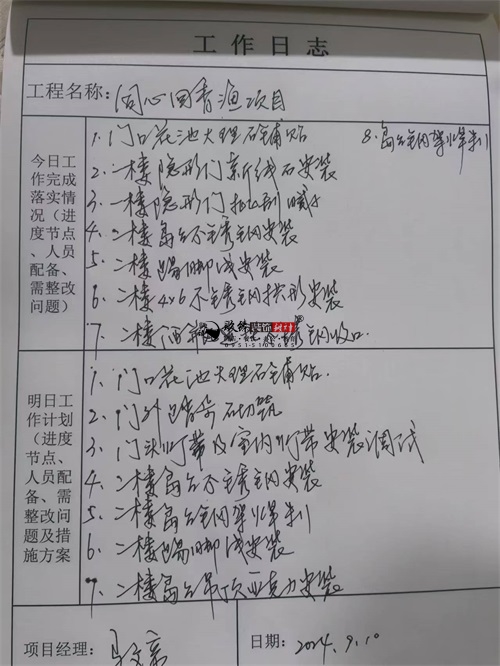 工作日志
工程名称：同心回青渔项目
今日工作完成落实情况（进度节点、人员配备、需整改问题）
1. 门口花池大理石铺贴
8. 岛台钢架焊制
2. 一楼隐形门新线石安装
3. 一楼隐形门
4. 二楼岛台不锈钢安装
5. 二楼踢脚线安装
6. 二楼4×6不锈钢拱形安装
7. 二楼 不锈钢收口
明日工作计划（进度节点、人员配备、需整改问题及措施方案
1. 门口花池大理石铺贴.
2. 门外 石切筑
3. 门头灯带及室内灯带安装调试
4. 二楼岛台不锈钢安装
5. 二楼岛台钢架焊制
6. 二楼踢脚线安装
7. 二楼岛台吊顶亚克力安装
项目经理：
日期：2024.9.10